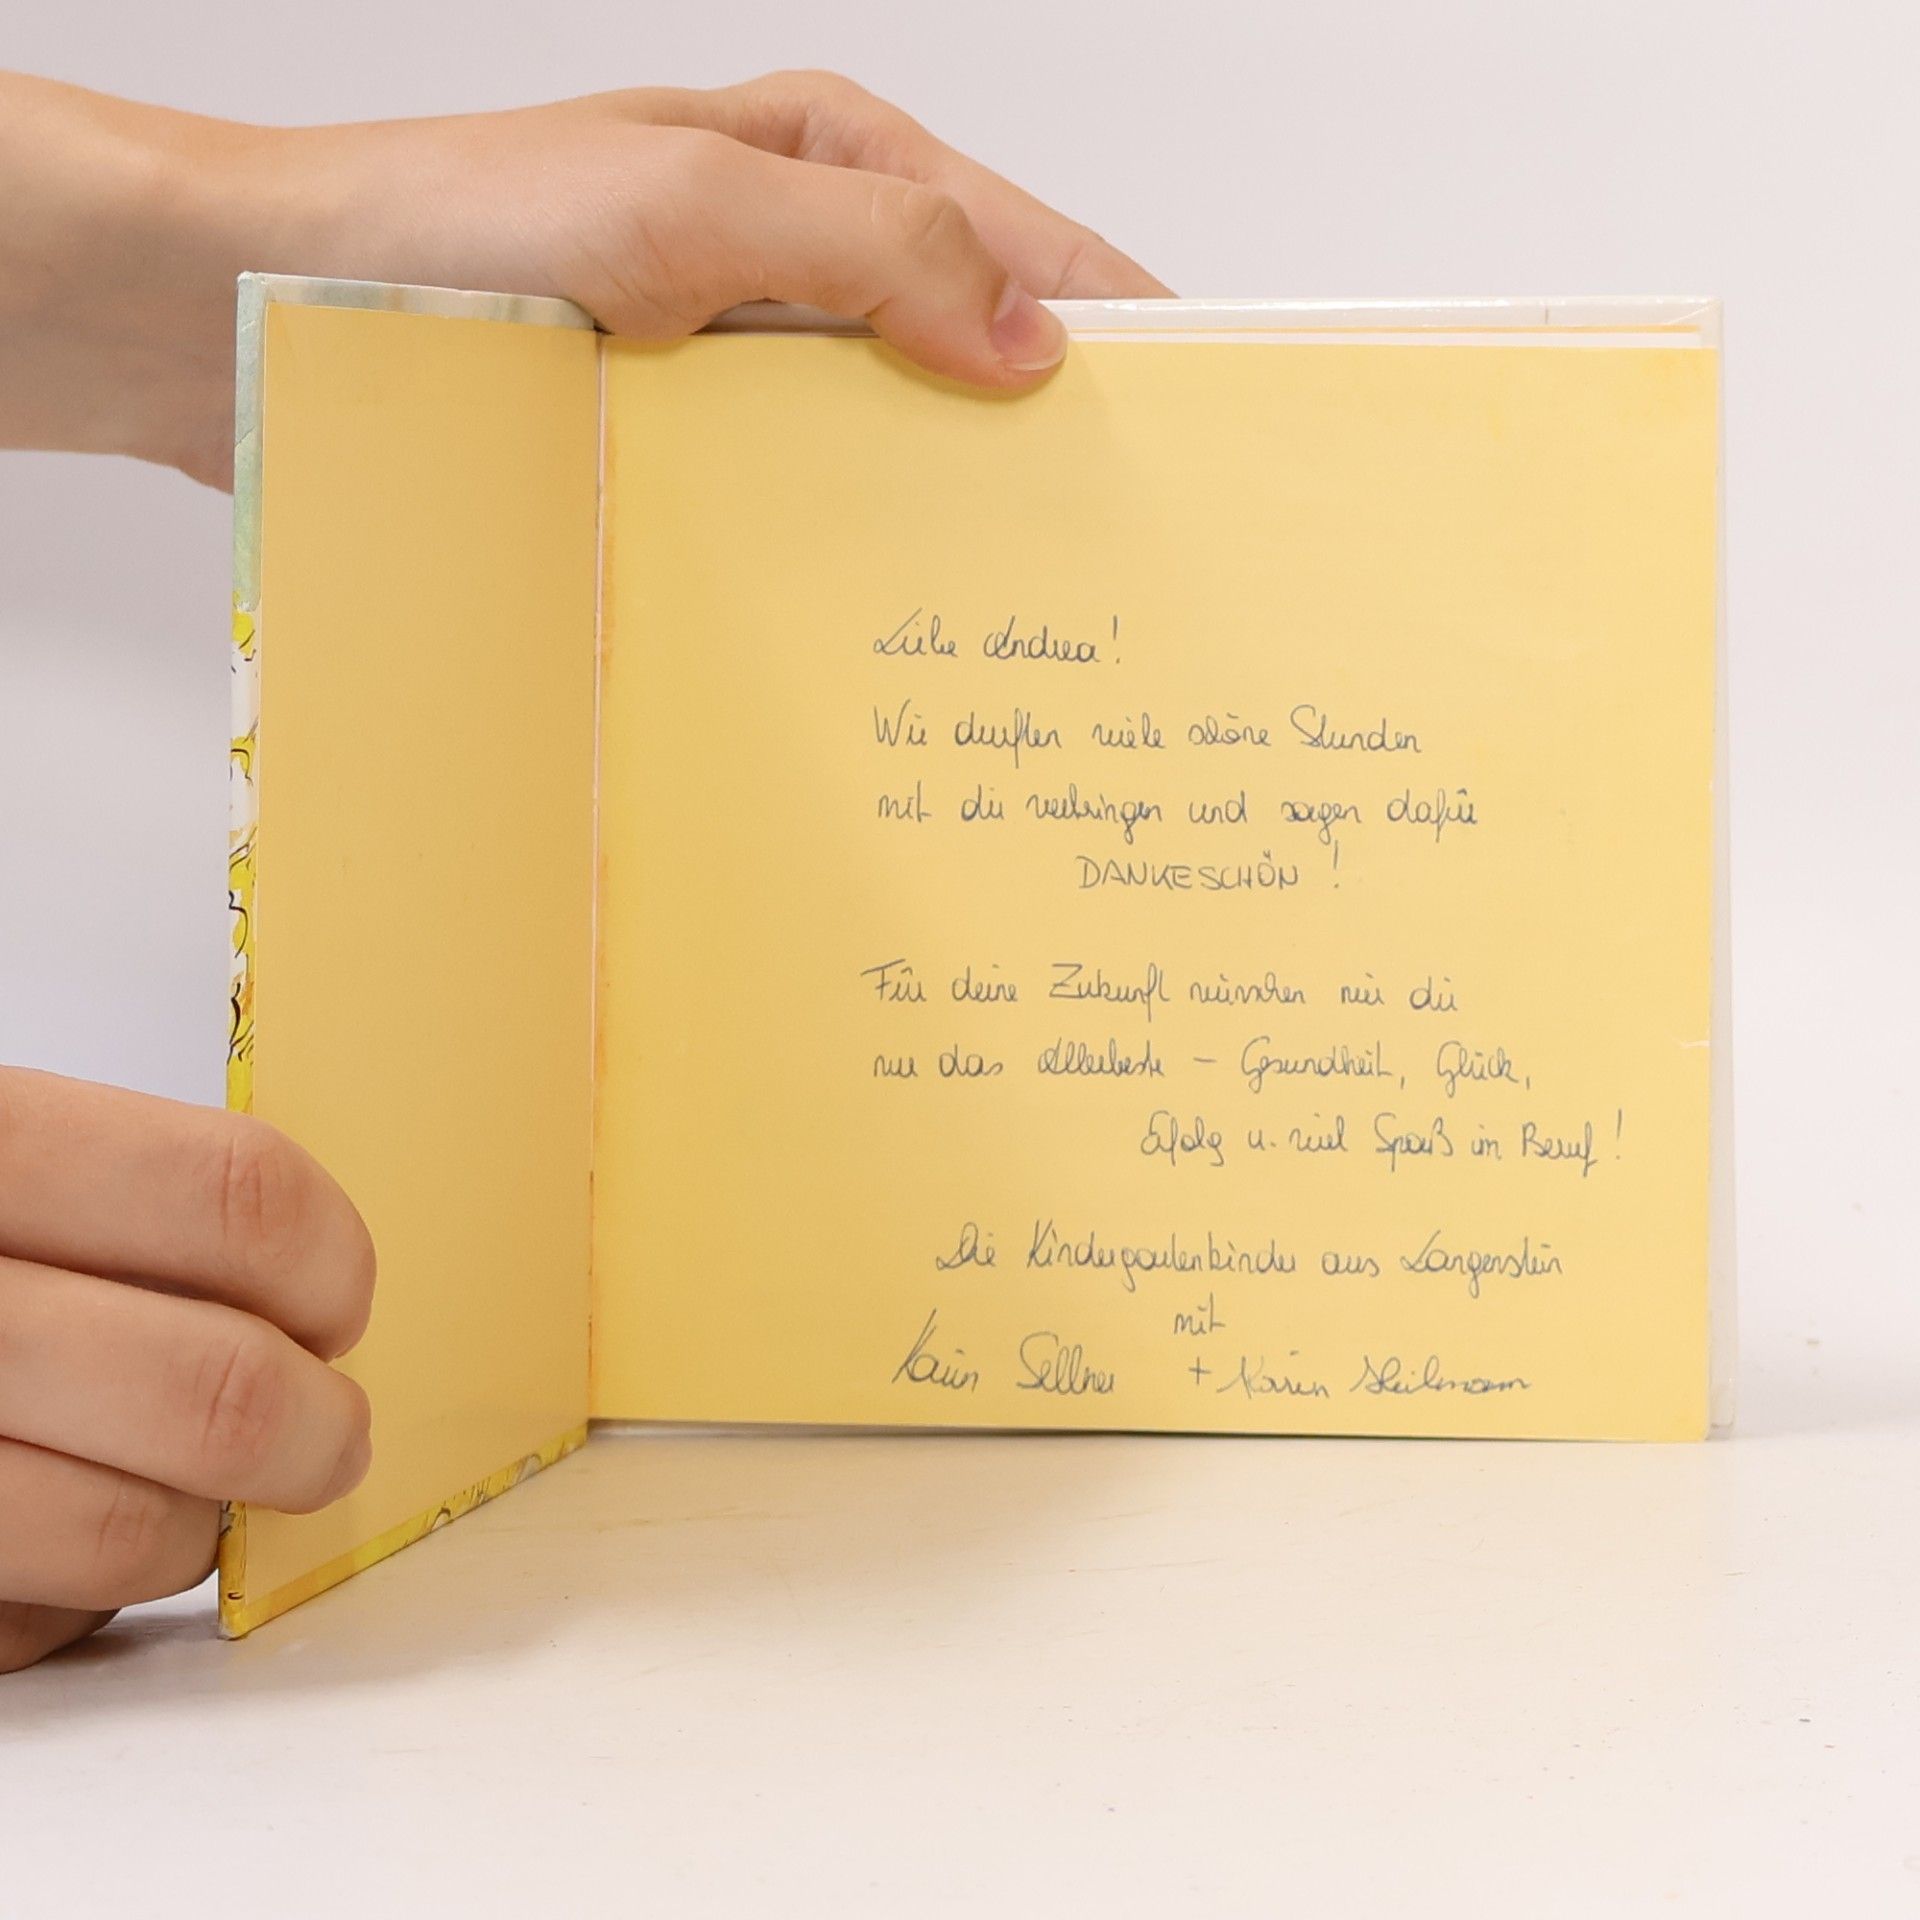 Liebe Andrea!
Wir durften viele schöne Stunden
mit dir verbringen und sagen dafür
DANKESCHÖN!
Für deine Zukunft wünschen wir dir
nur das Allerbeste - Gesundheit, Glück,
Erfolg u. viel Spaß im Beruf!
Die Kindergartenkinder aus Langenstein
mit
Karin Sellner + Karin Heilmann